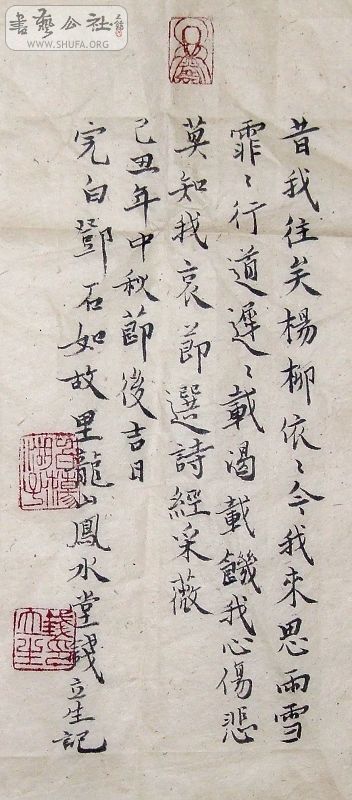 書藝公社
WWW.SHUFA.ORG
昔我往矣楊柳依〻今我來思雨雪
霏〻行道遲〻載渴載饑我心傷悲
莫知我哀節選詩經采薇
己丑年中秋節後吉日
完白鄧石如故里龍山鳳水堂錢立生記